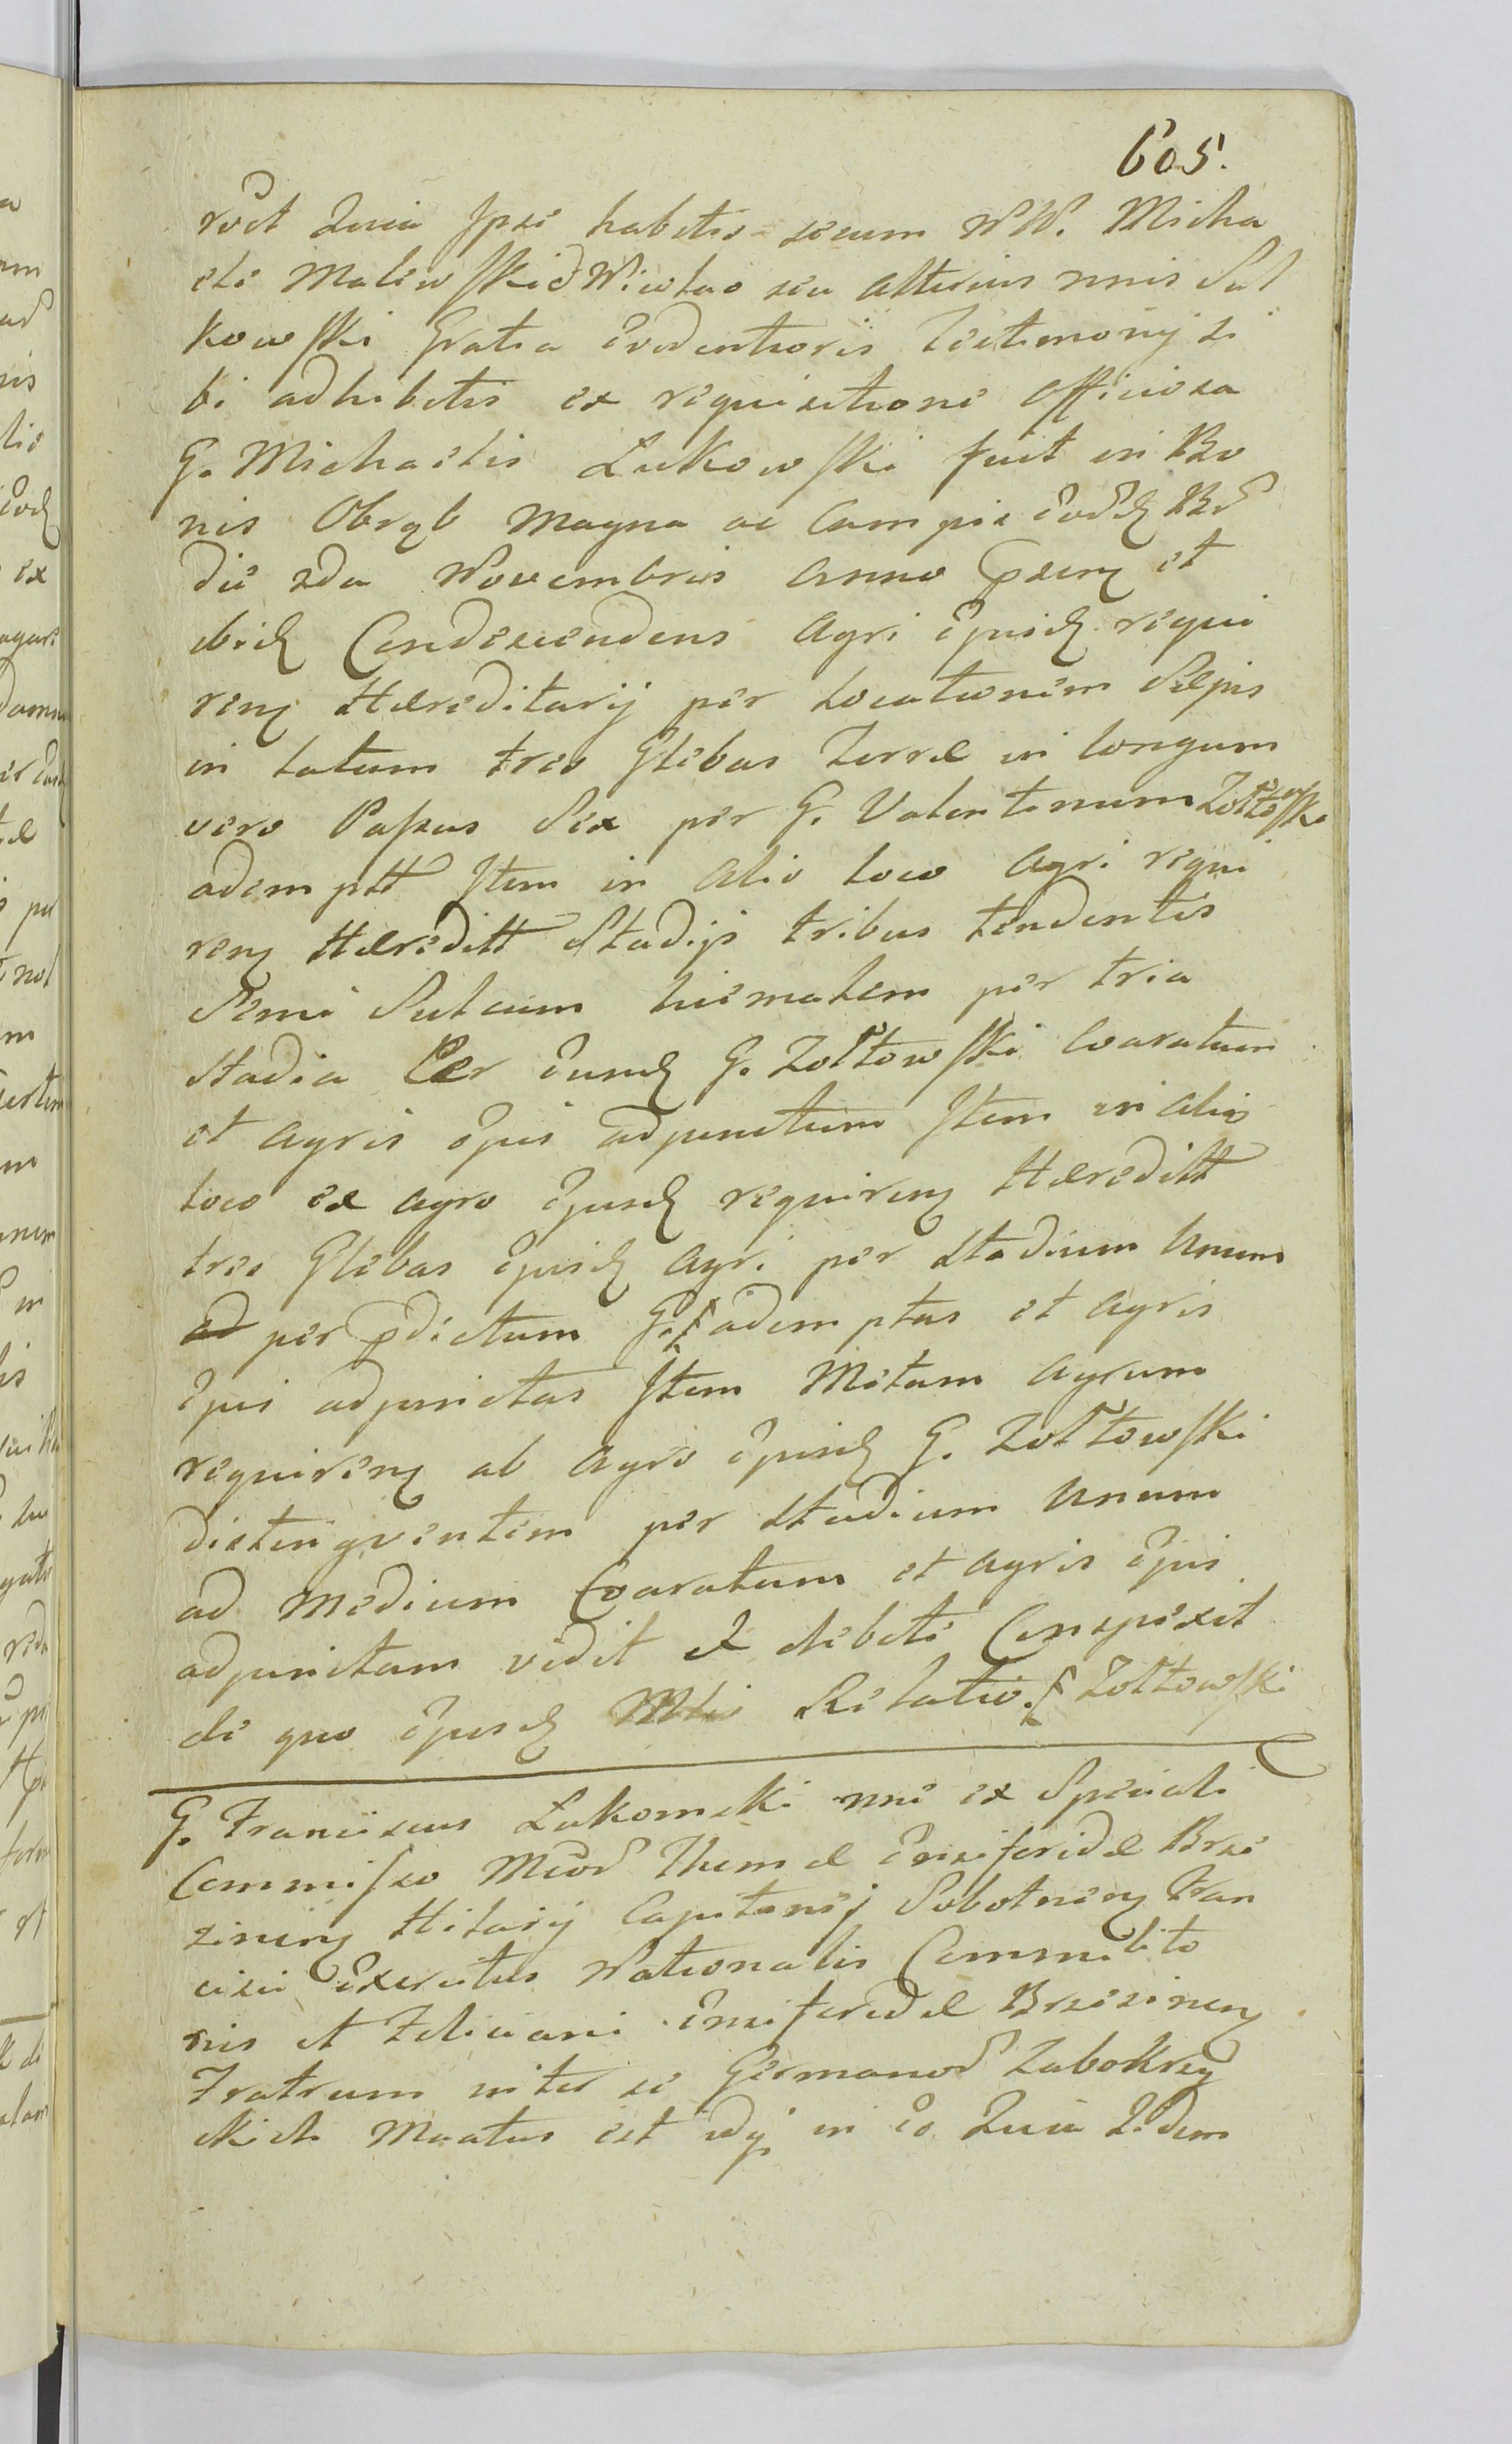 605.
voct Quia Ipse habitis secum NN. Micha
ele Malewski Nicolao seu alterius nnis Sul
kowski Gratia evidentioris Testimonij si
bi adhibitis ex requisitione officiosa
G. Michaelis Lukowski fuit in Bo
nis Obrąb Magna ac Campis eord Br
die 2da Novembris anno pxen et
ibid Condescendens Agri ejusd requi
ren Hæreditarij per Locationem Sepis
in latum tres Glebas Terræ in longum
vero Passus Sex per G. Valentinum Zołtowski
adempt Item in alio loco Agri requi
ren Hæredit Stadijs tribus tendentis
Semi Sulcum hiematem per tria
Stadia Per eund G. Zołtowski Coaratum
et agris ejus adjunctum Item in alio
loco ex agro ejusd requiren Hæredit
tres Glebas ejusd Agri per Stadium Unum
per pdictum G. ademptas et agris
ejus adjunctas Item Metam agrum
requiren ab Agro ejusd G. Zołtowski
distingventem per Stadium Unum
ad Medium Coaratum et agris ejus
adjunctam vidit et debite Conspexit
de quo ejusd Mlis Relatio. Zołtowski
G. Franciscus Lukomski nne ex Speciali
Commisso Thomæ Ensiferidæ Brze
zinen Hilarij Capitanej Sobotnen Fran
cisci Exercitus Nationalis Commilito
nis et Feliciani Ensiferidæ Brzezinen
Fratrum inter se Germanor Zabokrzy
ckich Mcatus est idq in eo Quia Idem